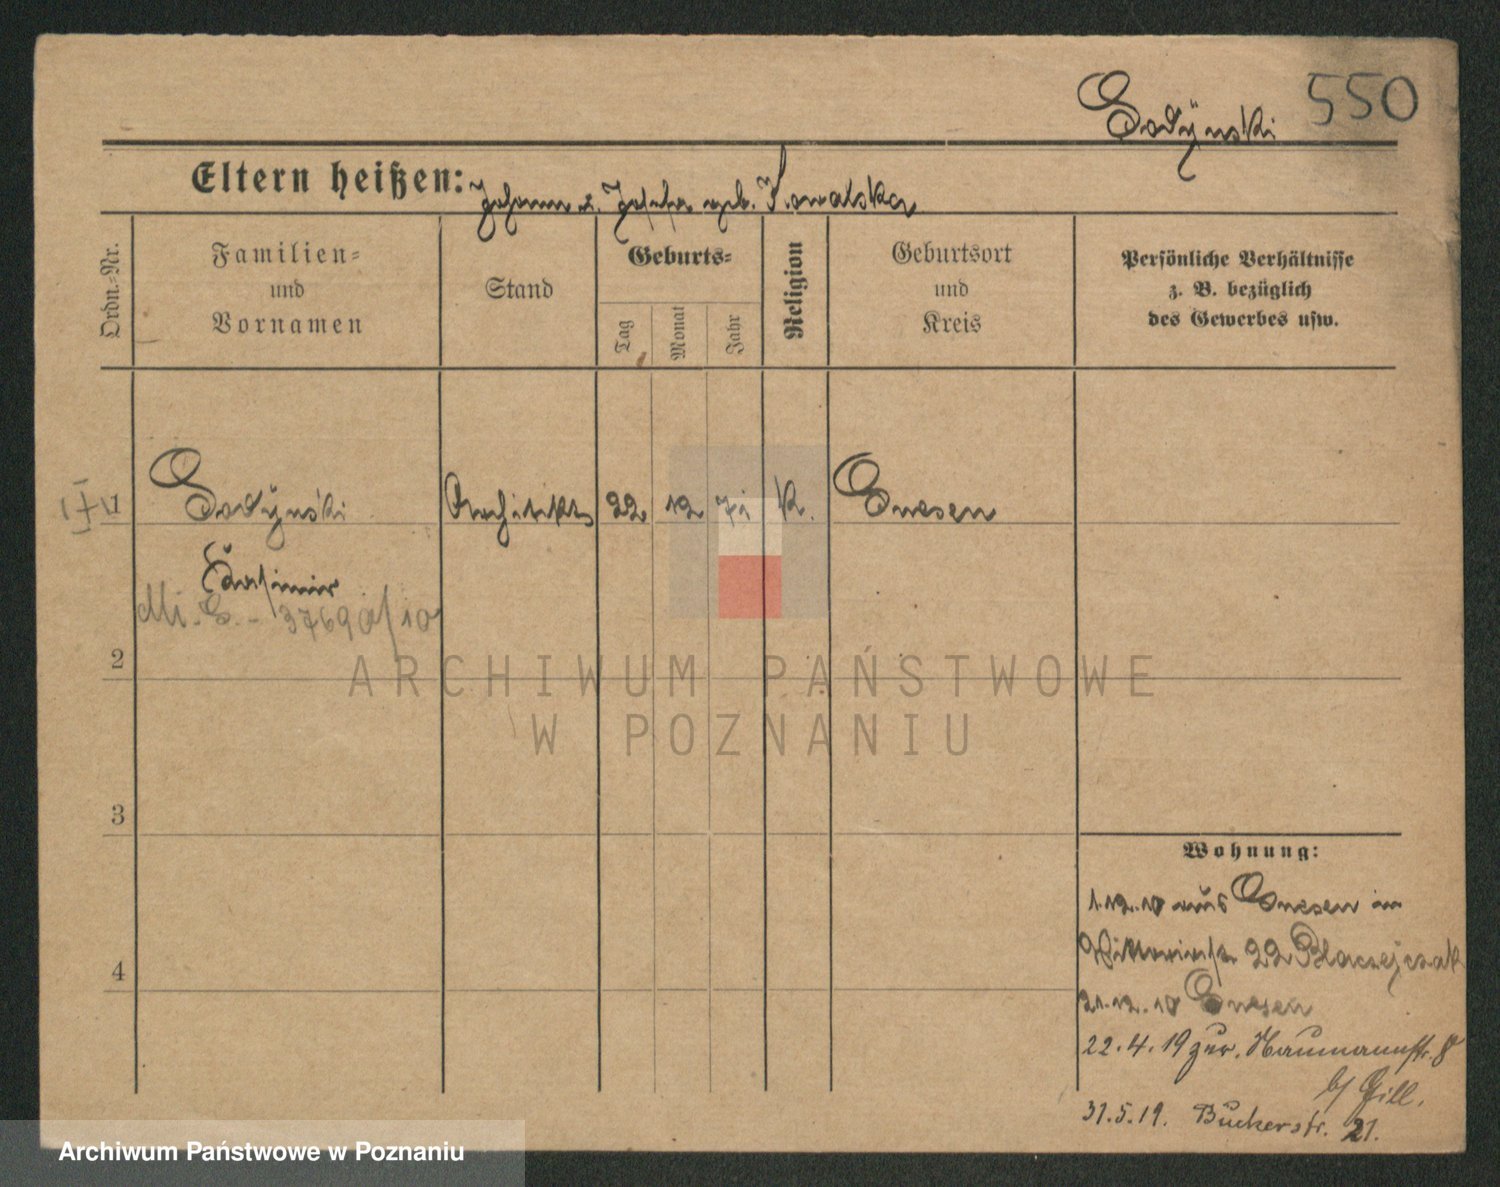 550
Eltern heißen: Johann u. Josefa geb. Kowalska
Ordn.-Nr.
Familien-
und
Vornamen
Stand
Geburts-
Tag
Monat
Jahr
Religion
Geburtsort
und
Kreis
Persönliche Verhältnisse
z. B. bezüglich
des Gewerbes usw.
1
Architekt
22
12
k.
Gnesen
Kasimir
2
3
4
ARCHIWUM PAŃSTWOWE
W POZNANIU
Wohnung:
1.12.10 aus Gnesen in
22 Blaczejczak
21.12.10 Gnesen
22.4.19 zur. Naumannstr. 8
b/ Gill.
31.5.19. Bukerstr. 21.
Archiwum Państwowe w Poznaniu